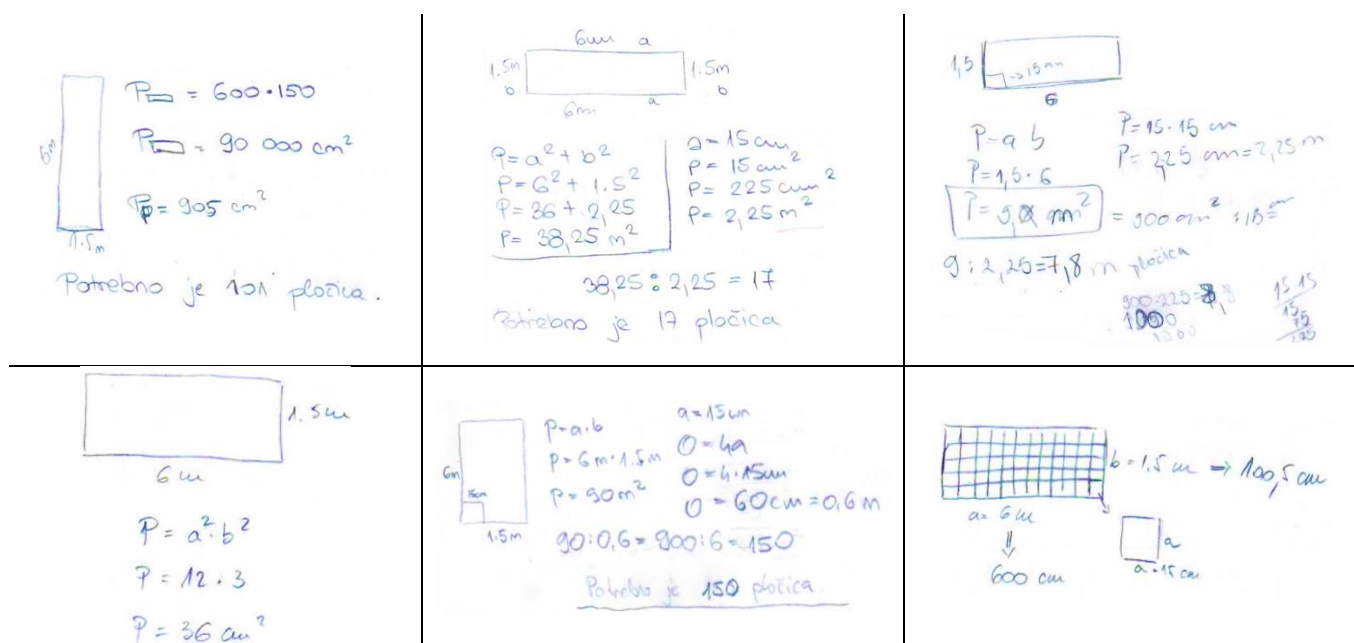 6m
P▭ = 600·150
P▭ = 90 000 cm²
Pp = 905 cm²
1.5m
Potrebno je 101 pločica.
6m a
1.5m
b
1.5m
b
6m a
P=a²+b²
P=6²+1.5²
P=36+2,25
P= 38,25 m²
a=15cm
P=15cm²
P= 225cm²
P= 2,25m²
38,25 : 2,25 = 17
Potrebno je 17 pločica
1,5
→15cm
6
P=a b
P=1,5·6
P=15·15 cm
= 900 cm²
9:2,25=7,8 m pločica
15·15
15
75
1.5cm
6m
P= a²·b²
P= 12·3
P= 36 cm²
6m
15cm
1.5m
P=a·b
P=6m·1.5m
P=90m²
a=15cm
O=4a
O=4·15cm
O=60cm=0,6m
90:0,6=900:6=150
Potrebno je 150 pločica.
b=1,5 cm → 100,5cm
a= 6m
⇓
600 cm
a
a=15cm